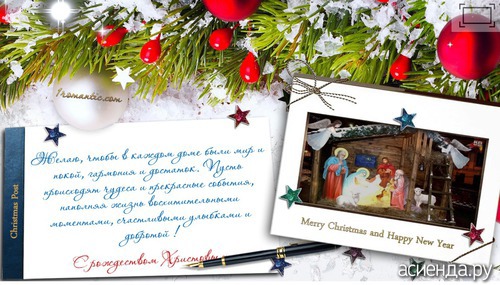 Fromantic.com
Christmas Post
Желаю, чтобы в каждом доме были мир и
покой, гармония и достаток. Пусть
происходят чудеса и прекрасные события,
наполняя жизнь восхитительными
моментами, счастливыми улыбками и
добротой !
С рождеством Христовы
Merry Christmas and Happy New Year
асиенда.ру